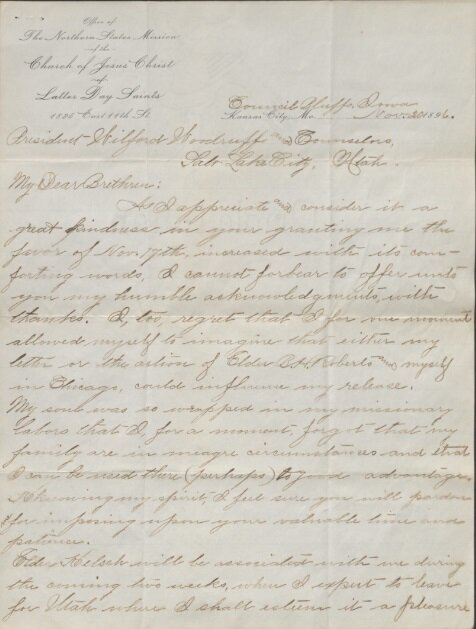 Office of
The Northern States Mission
of the
Church of Jesus Christ
of
Latter Day Saints
1825 East 11th St.
Council Bluffs, Iowa
Kansas City, Mo. Nov. 20 1896.
President Wilford Woodruff and Counselors,
Salt Lake City, Utah.
My Dear Brethren:
As I appresiate and consider it a
great kindness in your granting me the
favor of Nov. 17th, increased with its com-
forting words, I cannot forbear to offer unto
you my humble acknowledgments, with
thanks. I, too, regret that I for one moment
allowed myself to imagine that either my
letter or the action of Elder B.H. Roberts and myself
in Chicago, could influence my release.
My soul was so wrapped in my missionary
labors that I, for a moment, forgot that my
family are in meagre circumstances and that
I can be used there (perhaps) to good advantage.
Knowing my spirit, I feel sure you will pardon
for imposing upon your valuable time and
patience.
Elder Kelsch will be associated with me during
the coming two weeks, when I expect to leave
for Utah where I shall esteem it a pleasure